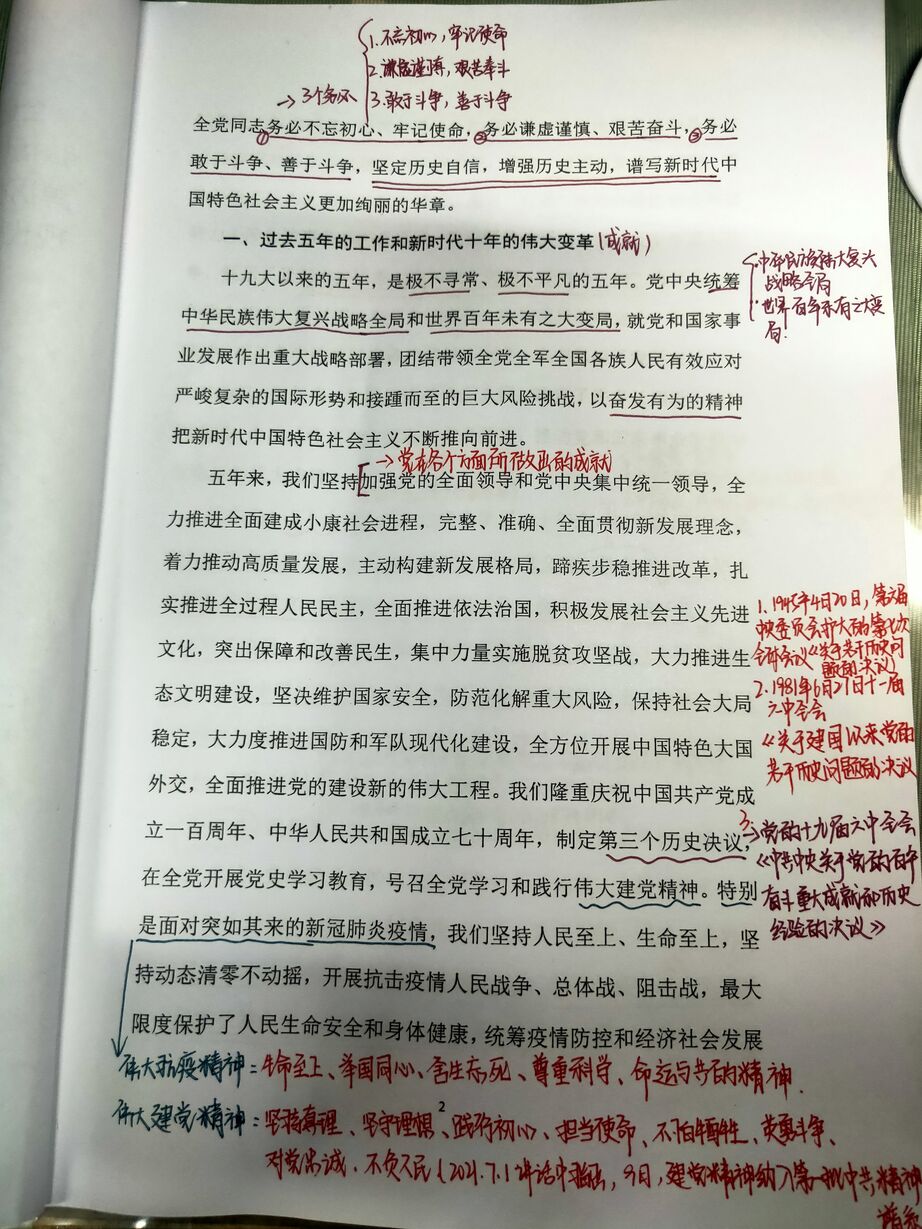 1.不忘初心,牢记使命
2.谦虚谨慎,艰苦奋斗
→3个务必
3.敢于斗争,善于斗争
全党同志务必不忘初心、牢记使命,务必谦虚谨慎、艰苦奋斗,务必
① ② ③
敢于斗争、善于斗争,坚定历史自信,增强历史主动,谱写新时代中
国特色社会主义更加绚丽的华章。
一、过去五年的工作和新时代十年的伟大变革(成就)
十九大以来的五年,是极不寻常、极不平凡的五年。党中央统筹
中华民族伟大复兴战略全局和世界百年未有之大变局,就党和国家事
业发展作出重大战略部署,团结带领全党全军全国各族人民有效应对
严峻复杂的国际形势和接踵而至的巨大风险挑战,以奋发有为的精神
把新时代中国特色社会主义不断推向前进。
中华民族伟大复兴
战略全局
世界百年未有之大变
局.
→党在各个方面所做出的成就
五年来,我们坚持[加强党的全面领导和党中央集中统一领导,全
力推进全面建成小康社会进程,完整、准确、全面贯彻新发展理念,
着力推动高质量发展,主动构建新发展格局,蹄疾步稳推进改革,扎
实推进全过程人民民主,全面推进依法治国,积极发展社会主义先进
文化,突出保障和改善民生,集中力量实施脱贫攻坚战,大力推进生
态文明建设,坚决维护国家安全,防范化解重大风险,保持社会大局
稳定,大力度推进国防和军队现代化建设,全方位开展中国特色大国
外交,全面推进党的建设新的伟大工程。我们隆重庆祝中国共产党成
立一百周年、中华人民共和国成立七十周年,制定第三个历史决议,
在全党开展党史学习教育,号召全党学习和践行伟大建党精神。特别
是面对突如其来的新冠肺炎疫情,我们坚持人民至上、生命至上,坚
持动态清零不动摇,开展抗击疫情人民战争、总体战、阻击战,最大
限度保护了人民生命安全和身体健康,统筹疫情防控和经济社会发展
1.1945年4月20日,第六届
中央委员会扩大的第七次
全体会议《关于若干历史问
题的决议》
2.1981年6月27日十一届
六中全会
《关于建国以来党的
若干历史问题的决议
3.
→党的十九届六中全会
《中共中央关于党的百年
奋斗重大成就和历史
经验的决议》
伟大抗疫精神:生命至上、举国同心、舍生忘死、尊重科学、命运与共的精神.
2
伟大建党精神:坚持真理、坚守理想、践行初心、担当使命、不怕牺牲、英勇斗争、
对党忠诚.不负人民(2021.7.1讲话中指出,9月,建党精神纳入第一批中共精神
谱系